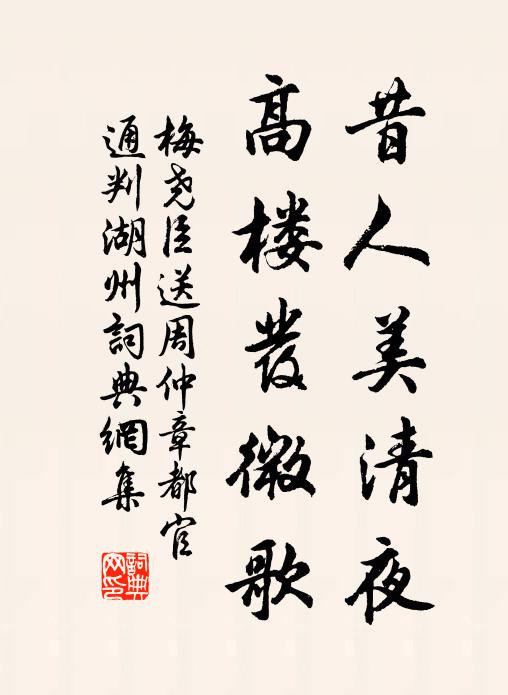 昔人美清夜
高楼发微歌
梅尧臣送周仲章都官
通判湖州詞典網集
詞典
网印